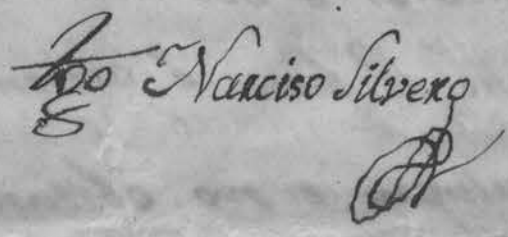 Narciso Silvero